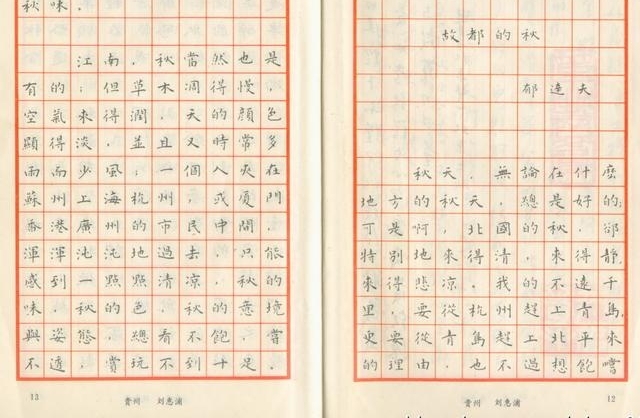 故都的秋
郁達夫
秋天，無論在什麼
地方的秋天，總是好的；
可是啊，北國的秋，卻
特別地來得清，來得靜，
來得悲涼。我的不遠千
里，要從杭州趕上青島，
更要從青島趕上北平來
的理由，也不過想飽嚐
貴州 刘惠浦
12
秋味。
江南，秋當然也是
有的；但草木凋得慢，
空氣來得潤，天的顏色
顯得淡，並且又時常多
雨而少風；一個人夾在
蘇州上海杭州，或廈門
香港廣州的市民中間，
渾渾沌沌地過去，只能
感到一點點清凉，秋的
味，秋的色，秋的意境
與姿態，總看不飽，嘗
不透，賞玩不到十足。
13
貴州 刘惠浦